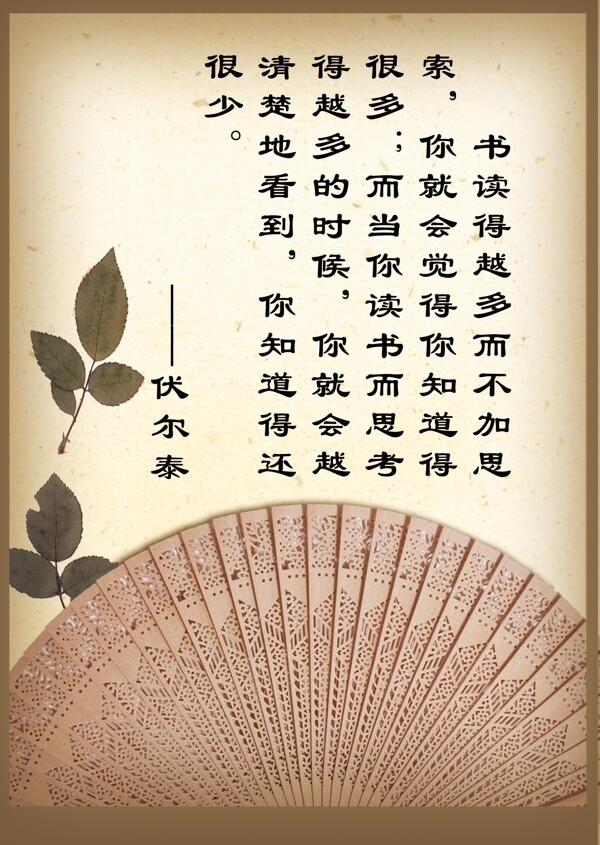 书读得越多而不加思
索，你就会觉得你知道得
很多；而当你读书而思考
得越多的时候，你就会越
清楚地看到，你知道得还
很少。
——伏尔泰